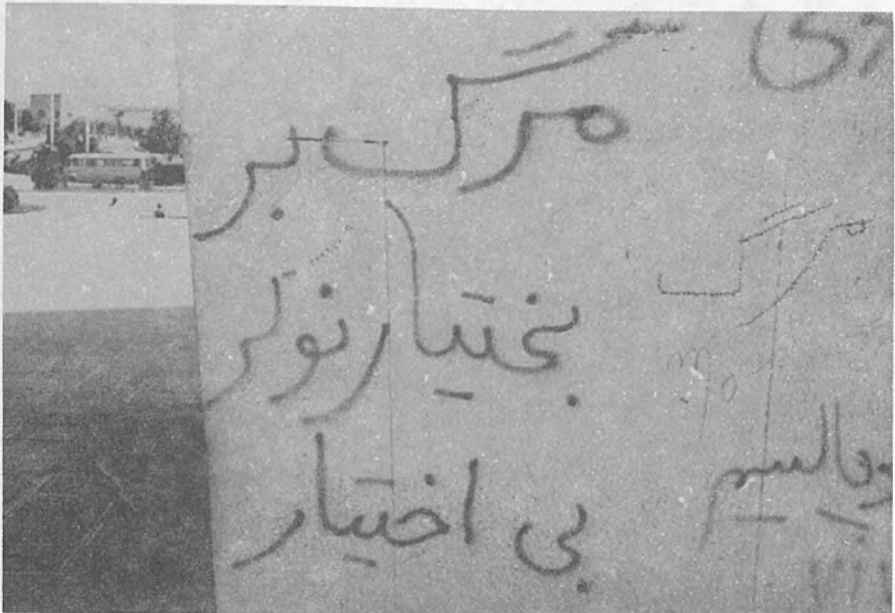 مرگ بر
بختیار نوکر
بی اختیار
مرگ